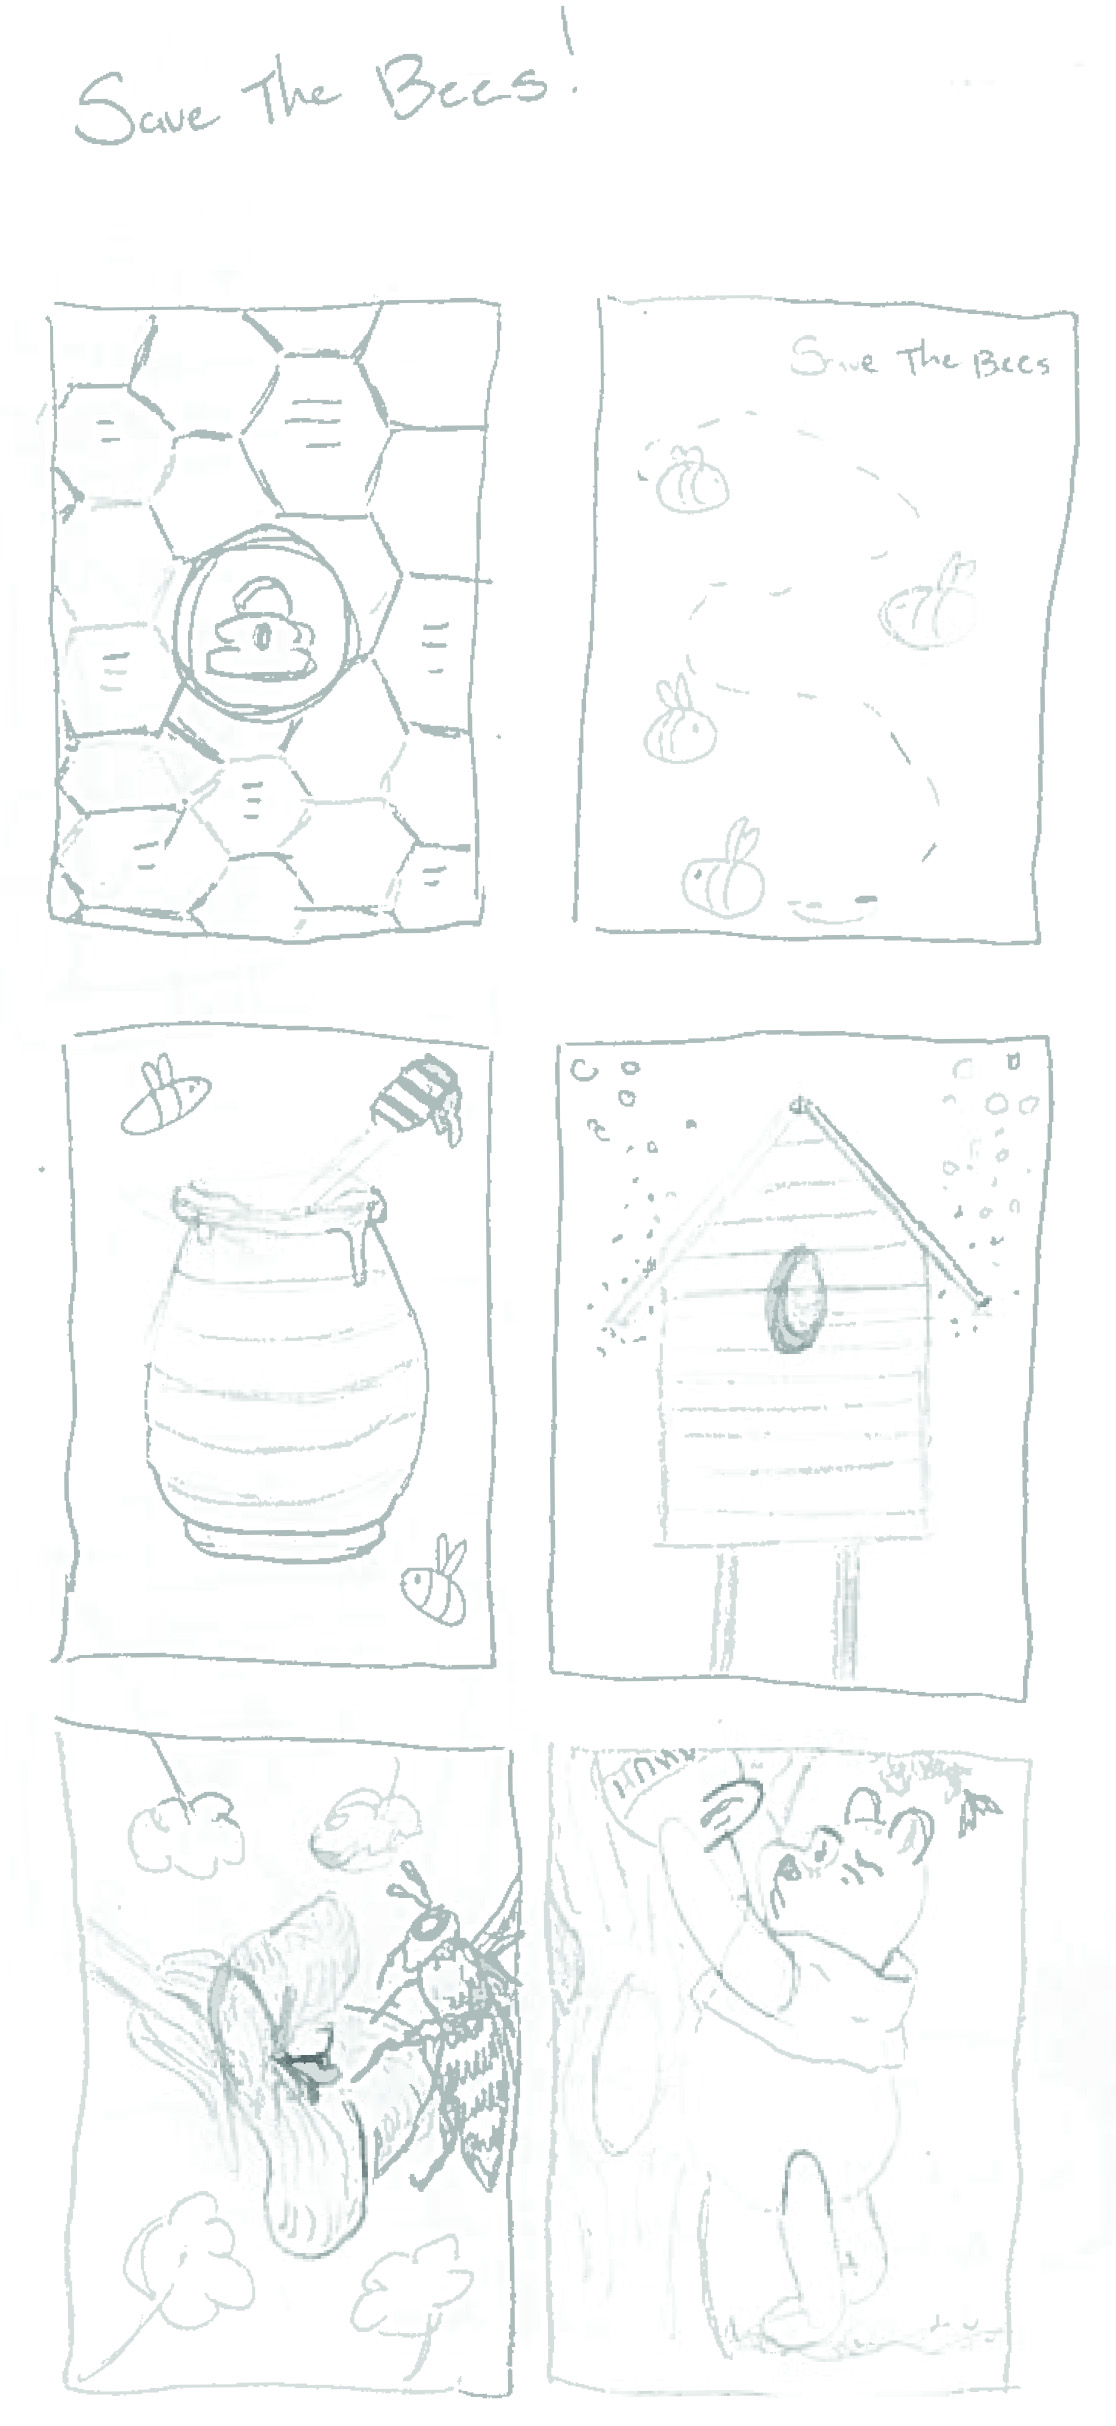 Save The Bees!
Save The Bees